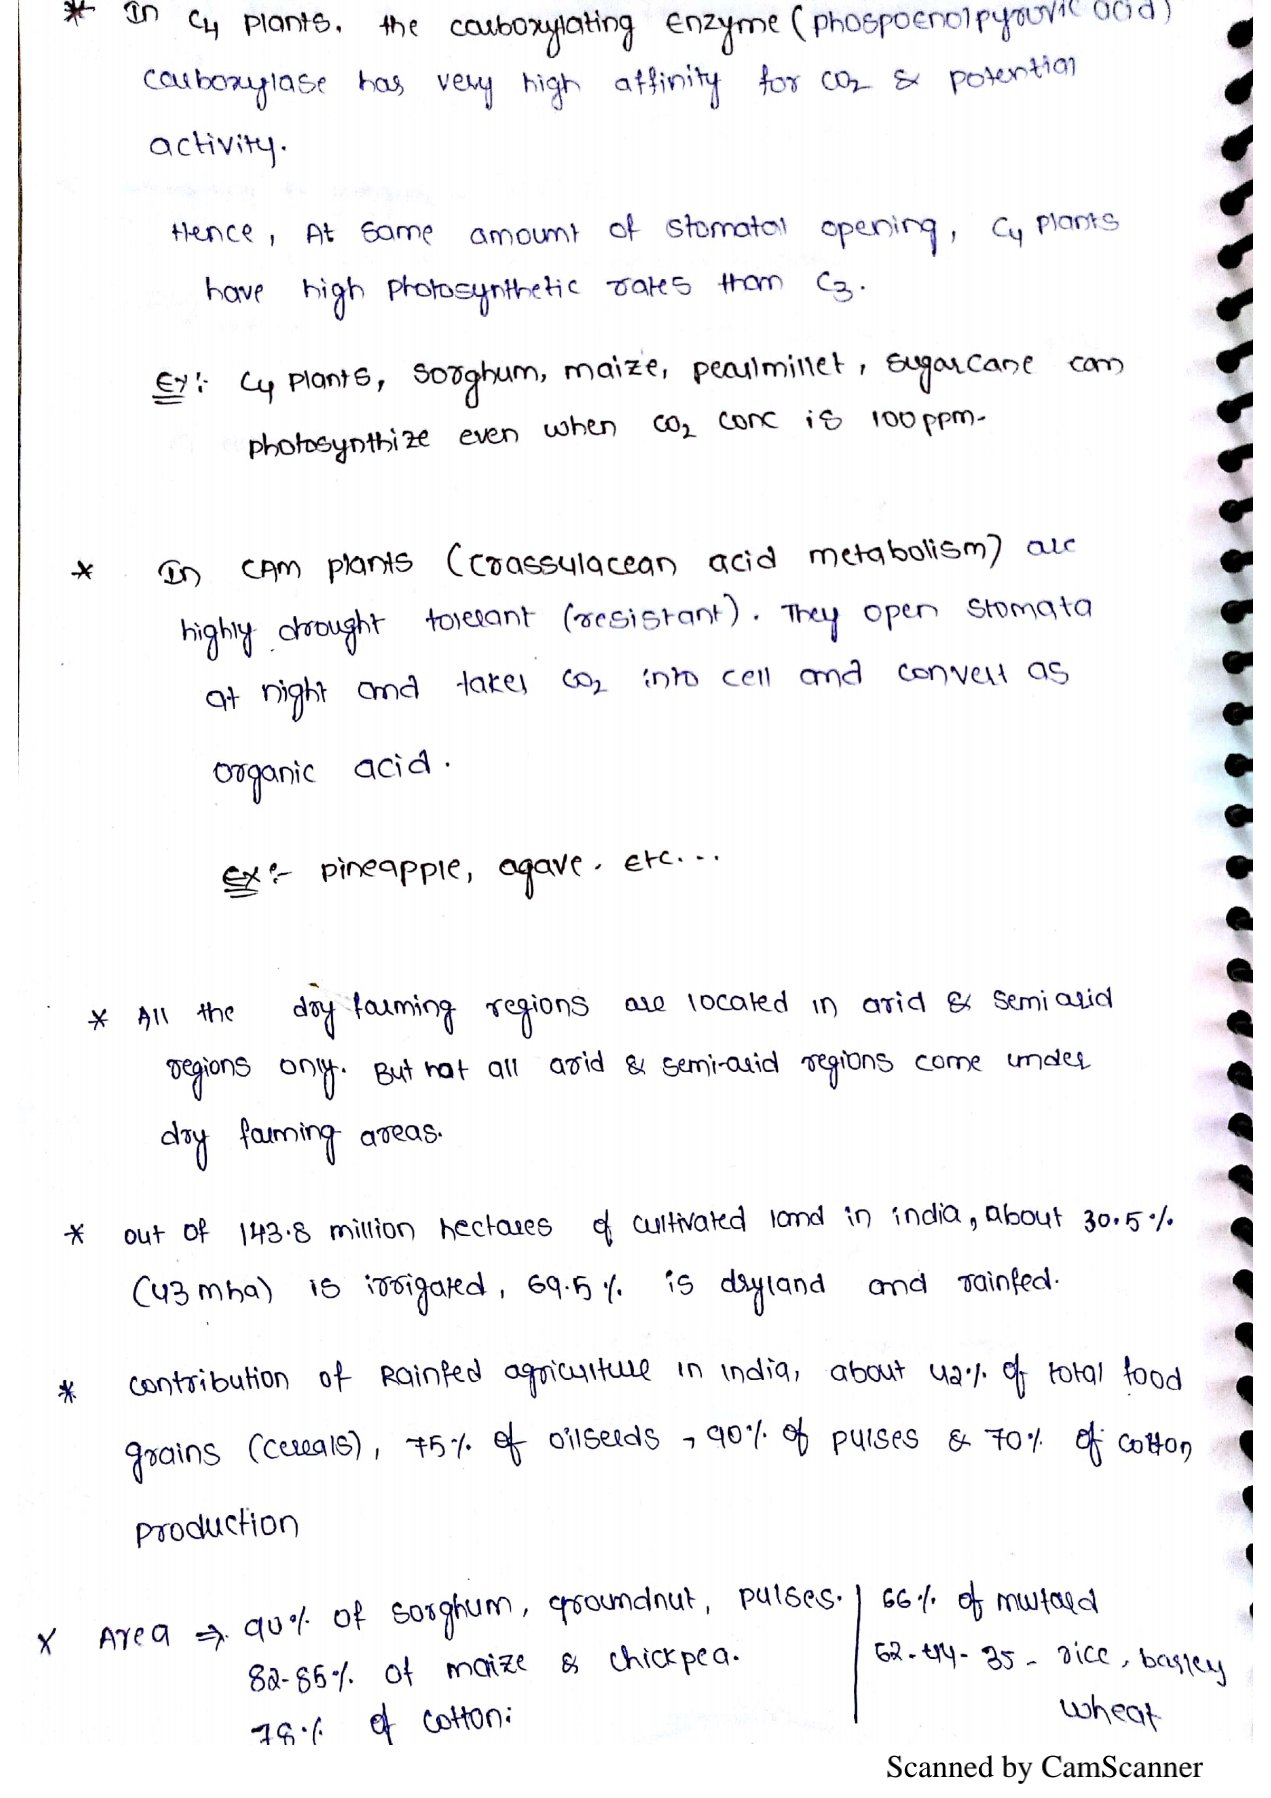 * In C4 plants. the carboxylating Enzyme (phospoenolpyruvic acid)
carboxylase has very high affinity for CO2 & potential
activity.
Hence, At same amount of stomatal opening, C4 plants
have high photosynthetic rates than C3.
Ex:- C4 plants, sorghum, maize, pearlmillet, sugarcane can
photosynthize even when CO2 conc is 100ppm.
* In CAM plants (crassulacean acid metabolism) are
highly drought tolerant (resistant). They open stomata
at night and takes CO2 into cell and convert as
organic acid.
Ex:- pineapple, agave. etc...
* All the dry farming regions are located in arid & semi arid
regions only. But not all arid & semi-arid regions come under
dry farming areas.
* out of 143.8 million hectares of cultivated land in india, about 30.5%
(43 mha) is irrigated, 69.5% is dryland and rainfed.
* contribution of Rainfed agriculture in India, about 42% of total food
grains (cereals), 75% of oilseeds, 90% of pulses & 70% of cotton
production
* Area ⇒ 90% of sorghum, groundnut, pulses. | 66% of mustard
82-85% of maize & chickpea. | 62-44-35- rice, barley
78% of cotton: | wheat
Scanned by CamScanner